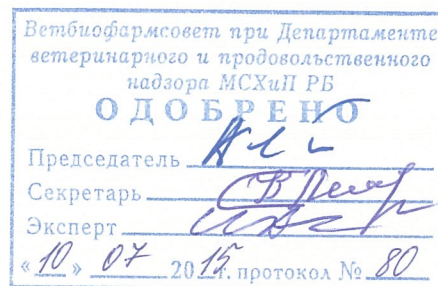 Ветбиофармсовет при Департаменте
ветеринарного и продовольственного
надзора МСХиП РБ
ОДОБРЕНО
Председатель
Секретарь
Эксперт
«10» 07 2015г. протокол № 80